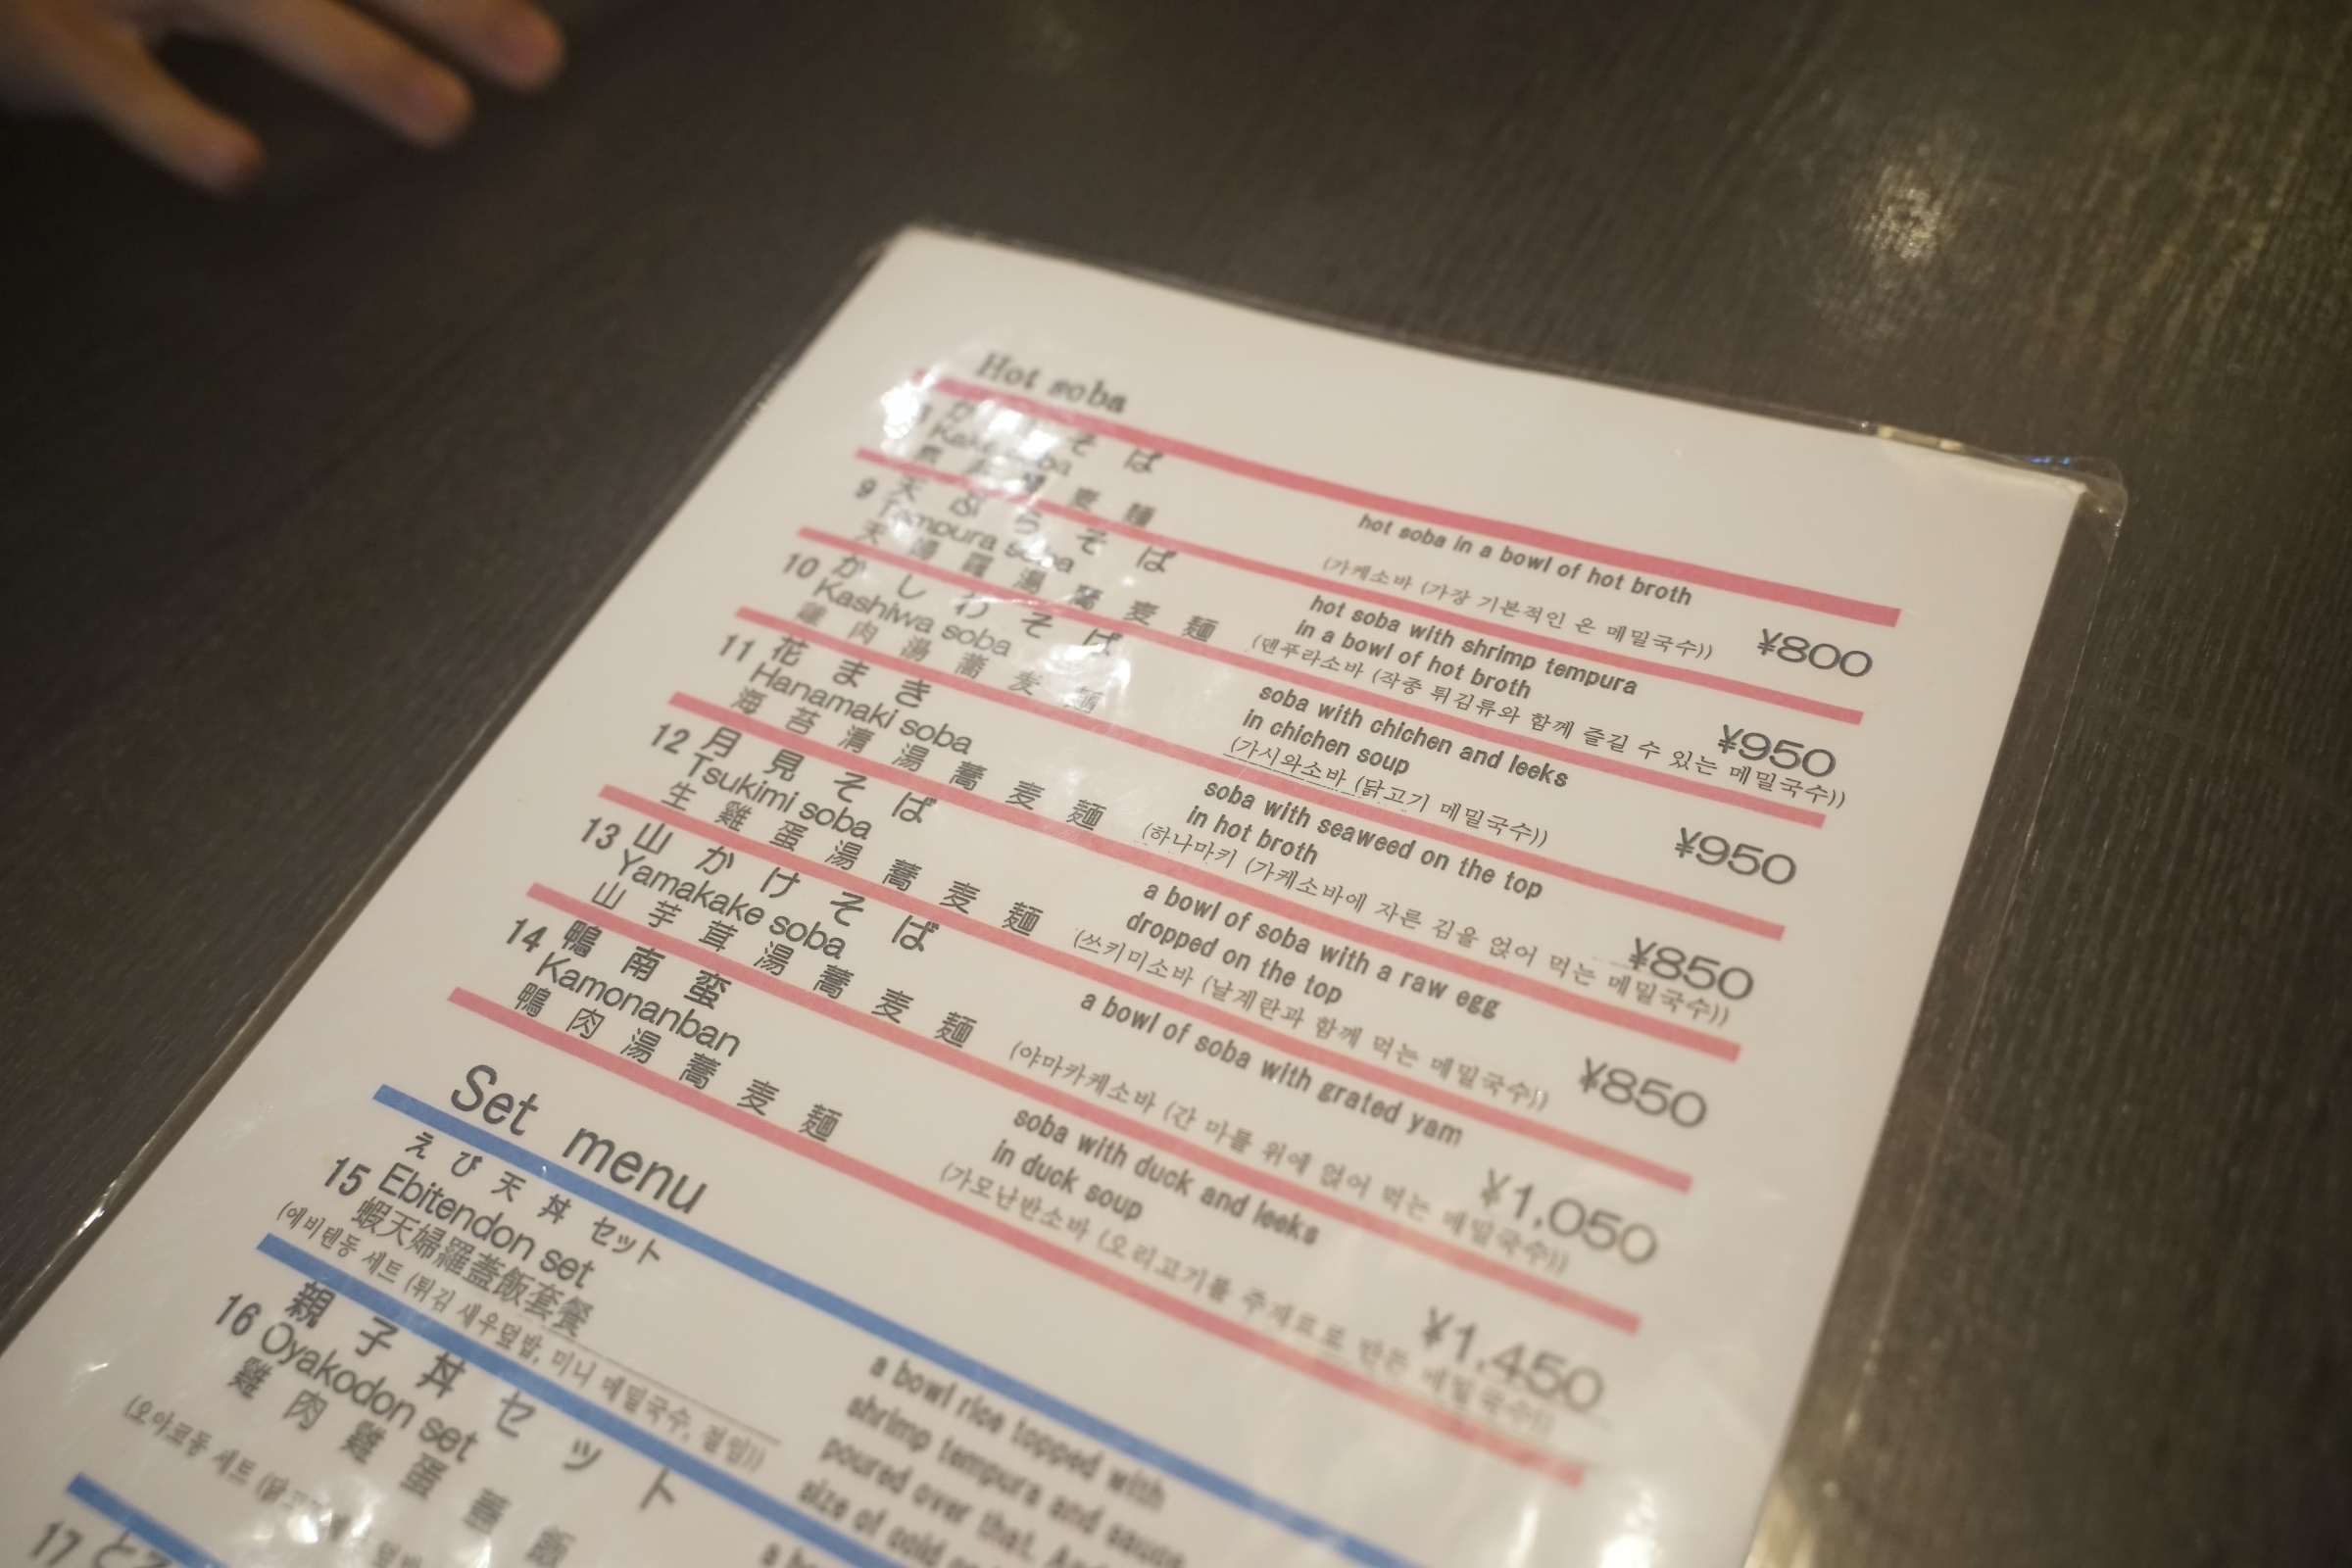 Hot soba
そ ば
Kake soba
麦 麺
hot soba in a bowl of hot broth
(가케소바 (가장 기본적인 온 메밀국수))
¥800
9 天 ぷ ら そ ば
Tempura soba
天 婦 羅 湯 蕎 麦 麺
hot soba with shrimp tempura
in a bowl of hot broth
(덴푸라소바 (각종 튀김류와 함께 즐길 수 있는 메밀국수))
¥950
10 か し わ そ ば
Kashiwa soba
雞 肉 湯 蕎 麦 麺
soba with chichen and leeks
in chichen soup
(가시와소바 (닭고기 메밀국수))
¥950
11 花 ま き
Hanamaki soba
海 苔 清 湯 蕎 麦 麺
soba with seaweed on the top
in hot broth
(하나마키 (가케소바에 자른 김을 얹어 먹는 메밀국수))
¥850
12 月 見 そ ば
Tsukimi soba
生 雞 蛋 湯 蕎 麦 麺
a bowl of soba with a raw egg
dropped on the top
(쓰키미소바 (날계란과 함께 먹는 메밀국수))
¥850
13 山 か け そ ば
Yamakake soba
山 芋 茸 湯 蕎 麦 麺
a bowl of soba with grated yam
(야마카케소바 (간 마를 위에 얹어 먹는 메밀국수))
¥1,050
14 鴨 南 蛮
Kamonanban
鴨 肉 湯 蕎 麦 麺
soba with duck and leeks
in duck soup
(가모난반소바 (오리고기를 주재료로 만든 메밀국수))
¥1,450
Set menu
え び 天 丼 セット
15 Ebitendon set
蝦天婦羅蓋飯套餐
(에비텐동 세트 (튀김 새우덮밥, 미니 메밀국수, 절임))
a bowl rice topped with
shrimp tempura and sauce
poured over that. And
size of cold
16 親 子 丼 セ ッ ト
Oyakodon set
雞 肉 雞 蛋 蓋 飯
(오야코동 세트
17 とろ